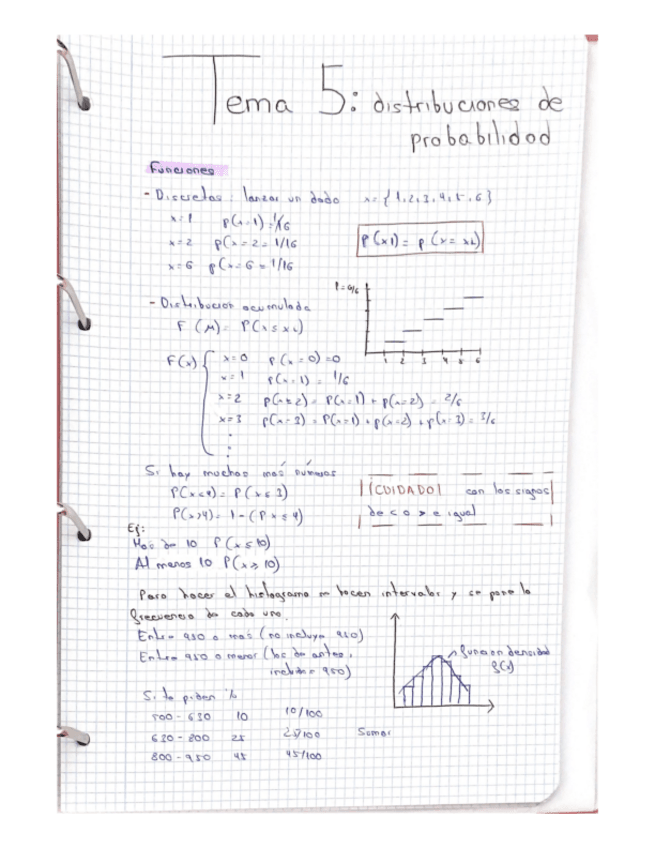 Tema 5: distribuciones de
probabilidad
Funciones
- Discretas: lanzar un dado x = {1,2,3,4,5,6}
x=1 p(x=1)=1/6
x=2 p(x=2=1/16
x=6 p(x=6=1/16
P(x1)= p(x=xi)
- Distribucion acumulada
F(M)= P(x≤xi)
P=6/6
1 2 3 4 5 6
F(x) { x=0 p(x=0)=0
x=1 p(x=1)=1/6
x=2 p(x≤2)= P(x=1)+p(x=2)=2/6
x=3 p(x=3)=P(x=1)+p(x=2)+p(x=3)=3/6
Si hay muchos más números
P(x<4)= P(x≤3)
P(x>4)= 1-(P x≤4)
¡CUIDADO! con los signos
de < o > e igual
Ej:
Mas de 10 P(x≤10)
Al menos 10 P(x≥10)
Para hacer el histograma se hacen intervalos y se pone la
frecuencia de cada uno.
Entre 950 o mas (no incluye 950)
Entre 950 o menor (los de antes,
incluido 950)
funcion densidad
f(x)
Si lo piden %
500-630 10 10/100
630-800 25 25/100
800-950 45 45/100
Sumar